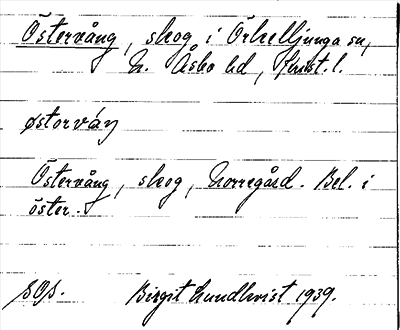 Östervång, skog i Örkelljunga sn,
N. Åsbo hd, Krist. l.
østorváŋ
Östervång, skog, Norregård. Bel. i
öster.
SOS. Birgit Lundkvist 1939.